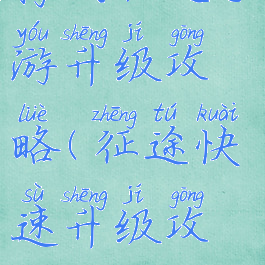 yóu shēng jí gōng
游升级攻
lüè zhēng tú kuài
略(征途快
sù shēng jí gōng
速升级攻